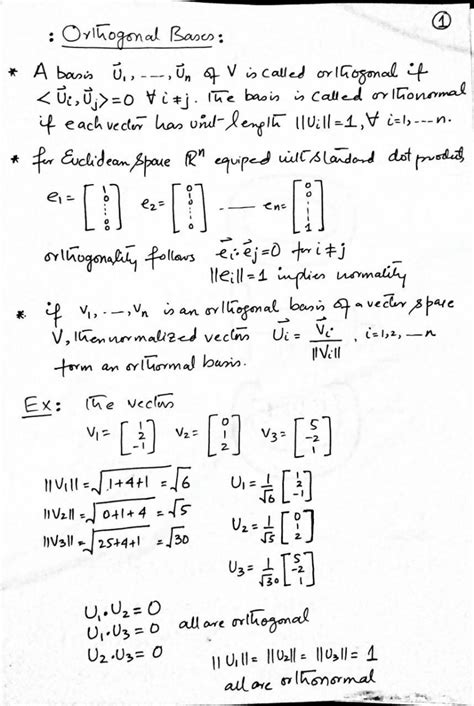 ①
: Orthogonal Bases :
* A basis u⃗₁, ---, u⃗ₙ of V is called orthogonal if
< u⃗ᵢ, u⃗ⱼ > = 0 ∀ i ≠ j. The basis is called orthonormal
if each vector has unit-length ||uᵢ|| = 1, ∀ i=1,---n.
* for Euclidean space ℝⁿ equiped with standard dot product,
e₁ = [1 0 0 ⋮ 0] e₂ = [0 1 0 ⋮ 0] ---- eₙ = [0 0 ⋮ 1]
orthogonality follows e⃗ᵢ·e⃗ⱼ = 0 for i ≠ j
||eᵢ|| = 1 implies normality
* if v₁, --, vₙ is an orthogonal basis of a vector space
V, then normalized vectors u⃗ᵢ = v⃗ᵢ / ||vᵢ||, i=1,2,--n
form an orthormal basis.
Ex: The vectors
v₁ = [1 2 -1] v₂ = [0 1 2] v₃ = [5 -2 1]
||v₁|| = √1+4+1 = √6 u₁ = 1/√6 [1 2 -1]
||v₂|| = √0+1+4 = √5 u₂ = 1/√5 [0 1 2]
||v₃|| = √25+4+1 = √30 u₃ = 1/√30 [5 -2 1]
u₁·u₂ = 0
u₁·u₃ = 0 all are orthogonal
u₂·u₃ = 0
||u₁|| = ||u₂|| = ||u₃|| = 1
all are orthonormal